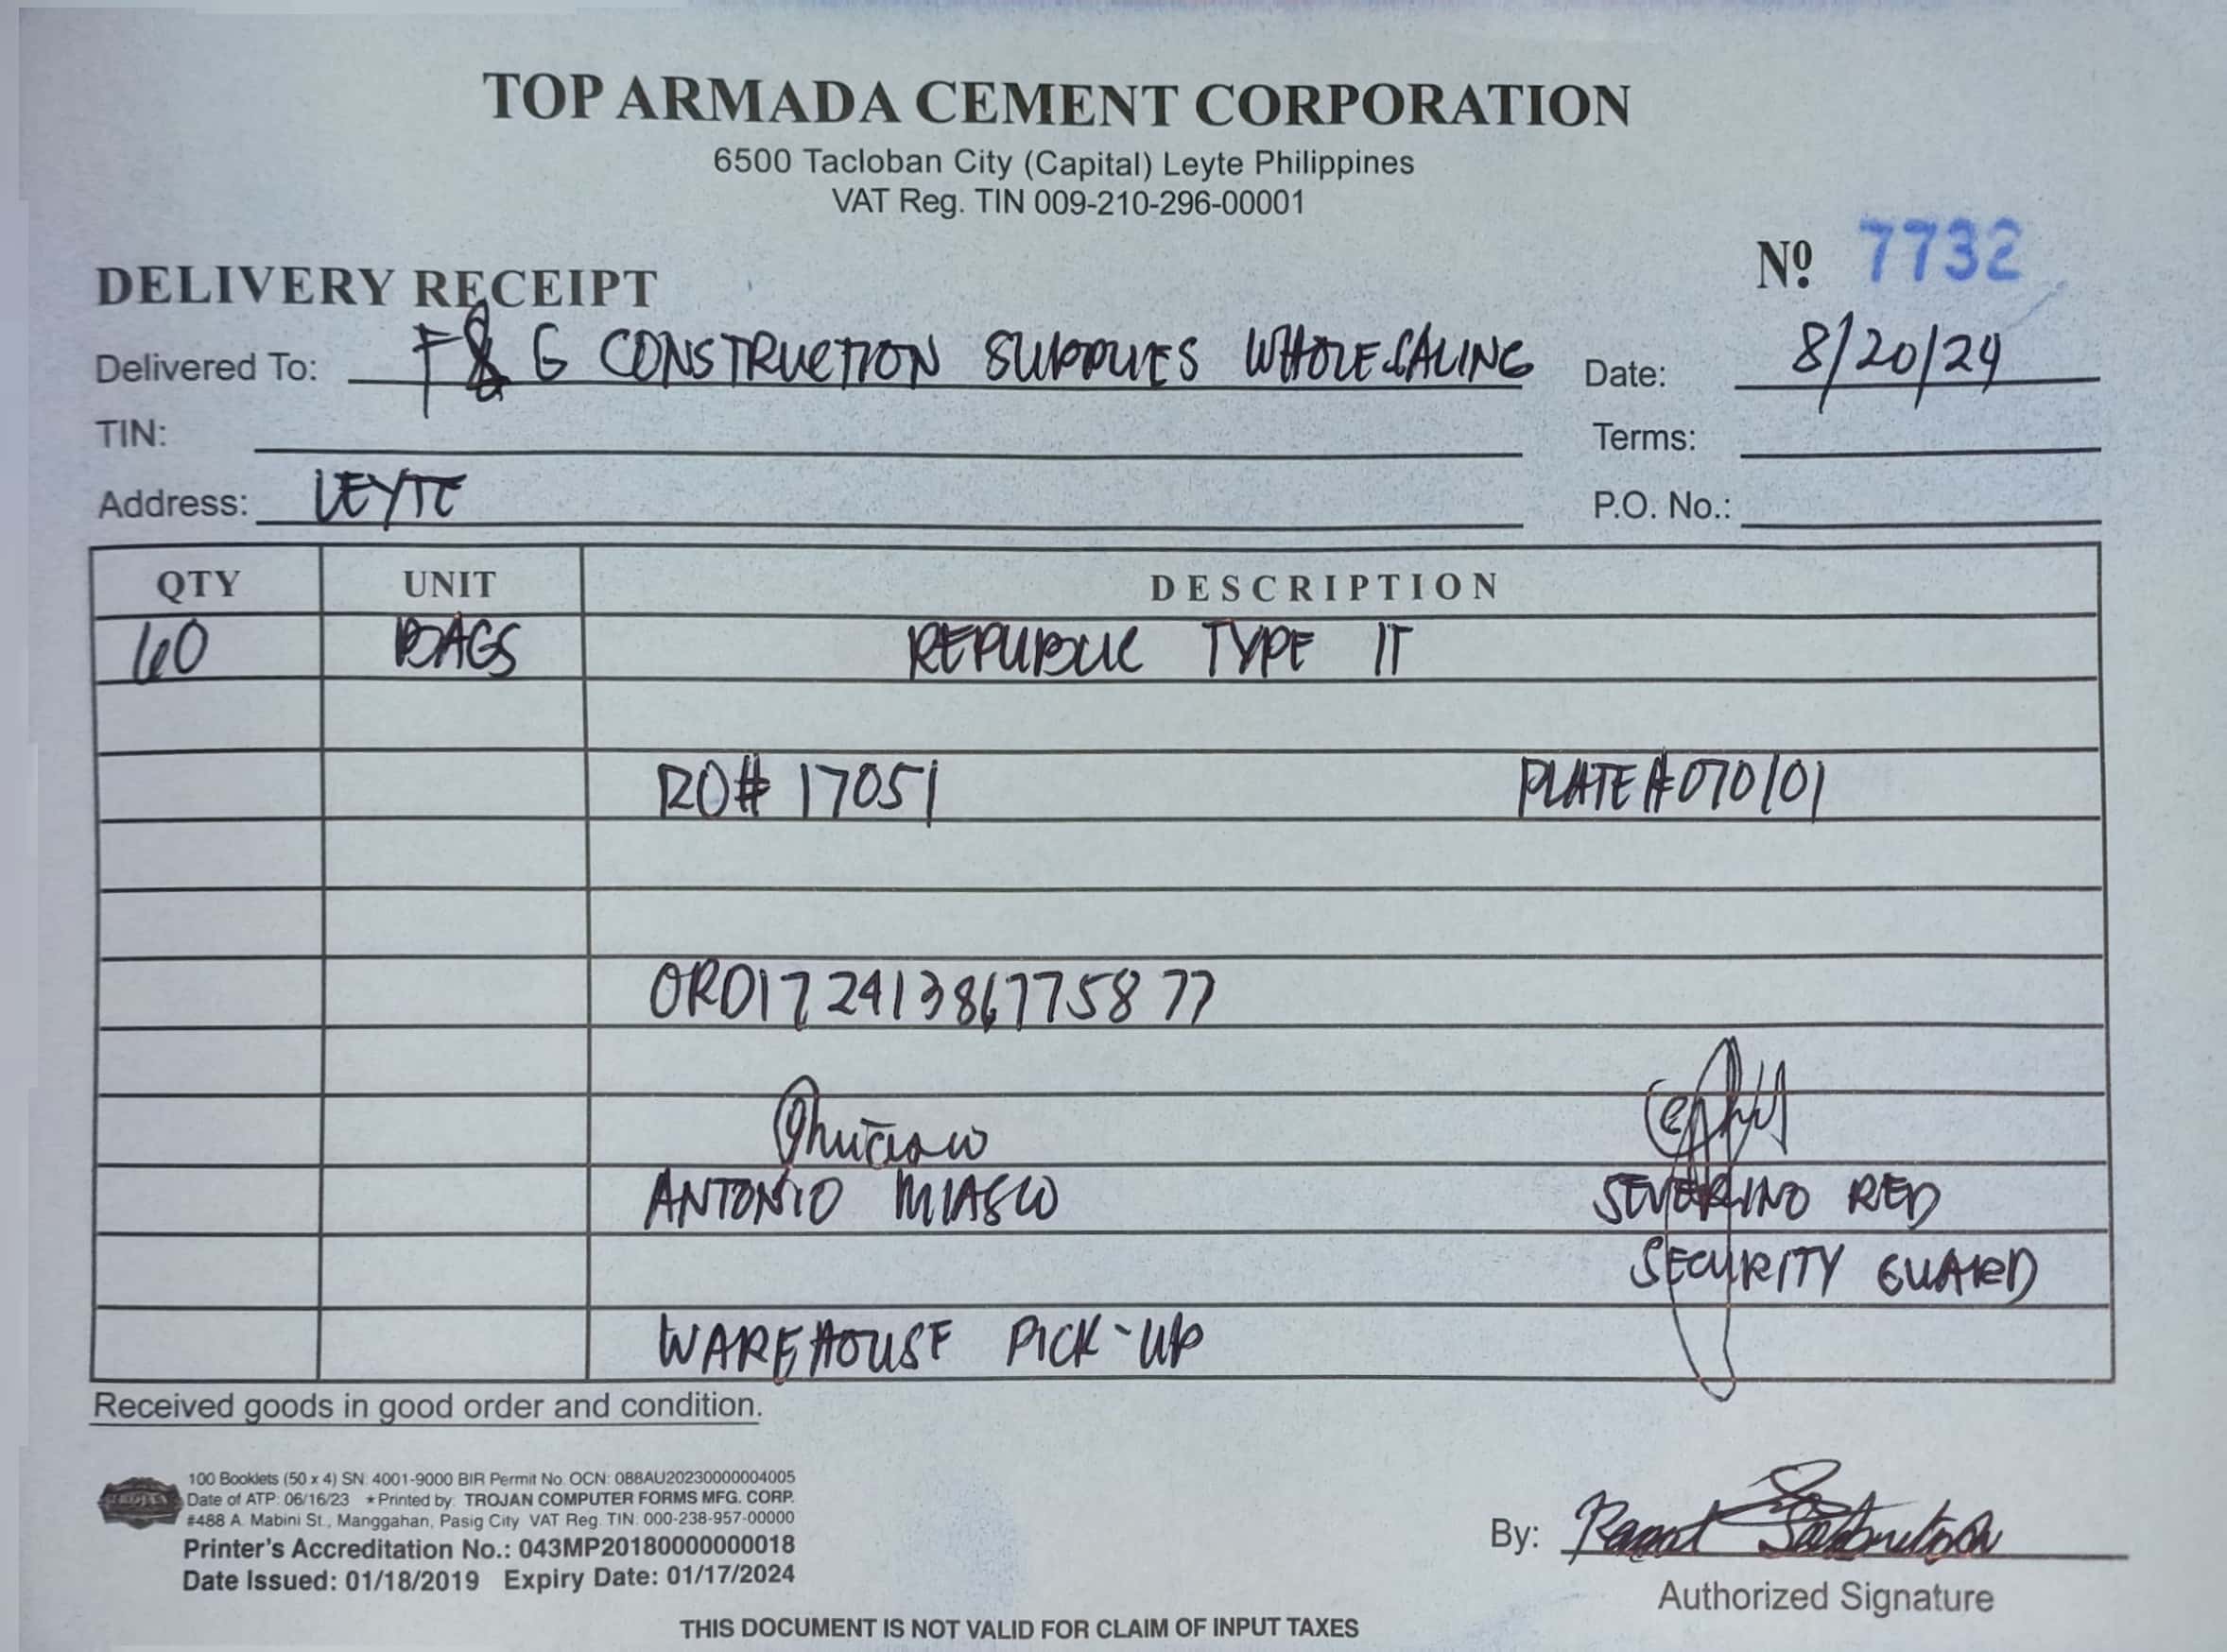 TOP ARMADA CEMENT CORPORATION
6500 Tacloban City (Capital) Leyte Philippines
VAT Reg. TIN 009-210-296-00001
DELIVERY RECEIPT Nº 7732
Delivered To: F & G CONSTRUCTION SUPPLIES WHOLESALING Date: 8/20/24
TIN: Terms:
Address: LEYTE P.O. No.:
QTY UNIT DESCRIPTION
60 BAGS REPUBLIC TYPE IT
RO# 17051 PLATE # 070101
ORD17241386775877
ANTONIO MIASCO SEVERINO RED
SECURITY GUARD
WAREHOUSE PICK-UP
Received goods in good order and condition.
TROJAN
100 Booklets (50 x 4) SN: 4001-9000 BIR Permit No. OCN: 088AU20230000004005
Date of ATP: 06/16/23 *Printed by: TROJAN COMPUTER FORMS MFG. CORP.
#488 A. Mabini St., Manggahan, Pasig City VAT Reg. TIN: 000-238-957-00000
Printer's Accreditation No.: 043MP20180000000018
Date Issued: 01/18/2019 Expiry Date: 01/17/2024
By:
Authorized Signature
THIS DOCUMENT IS NOT VALID FOR CLAIM OF INPUT TAXES